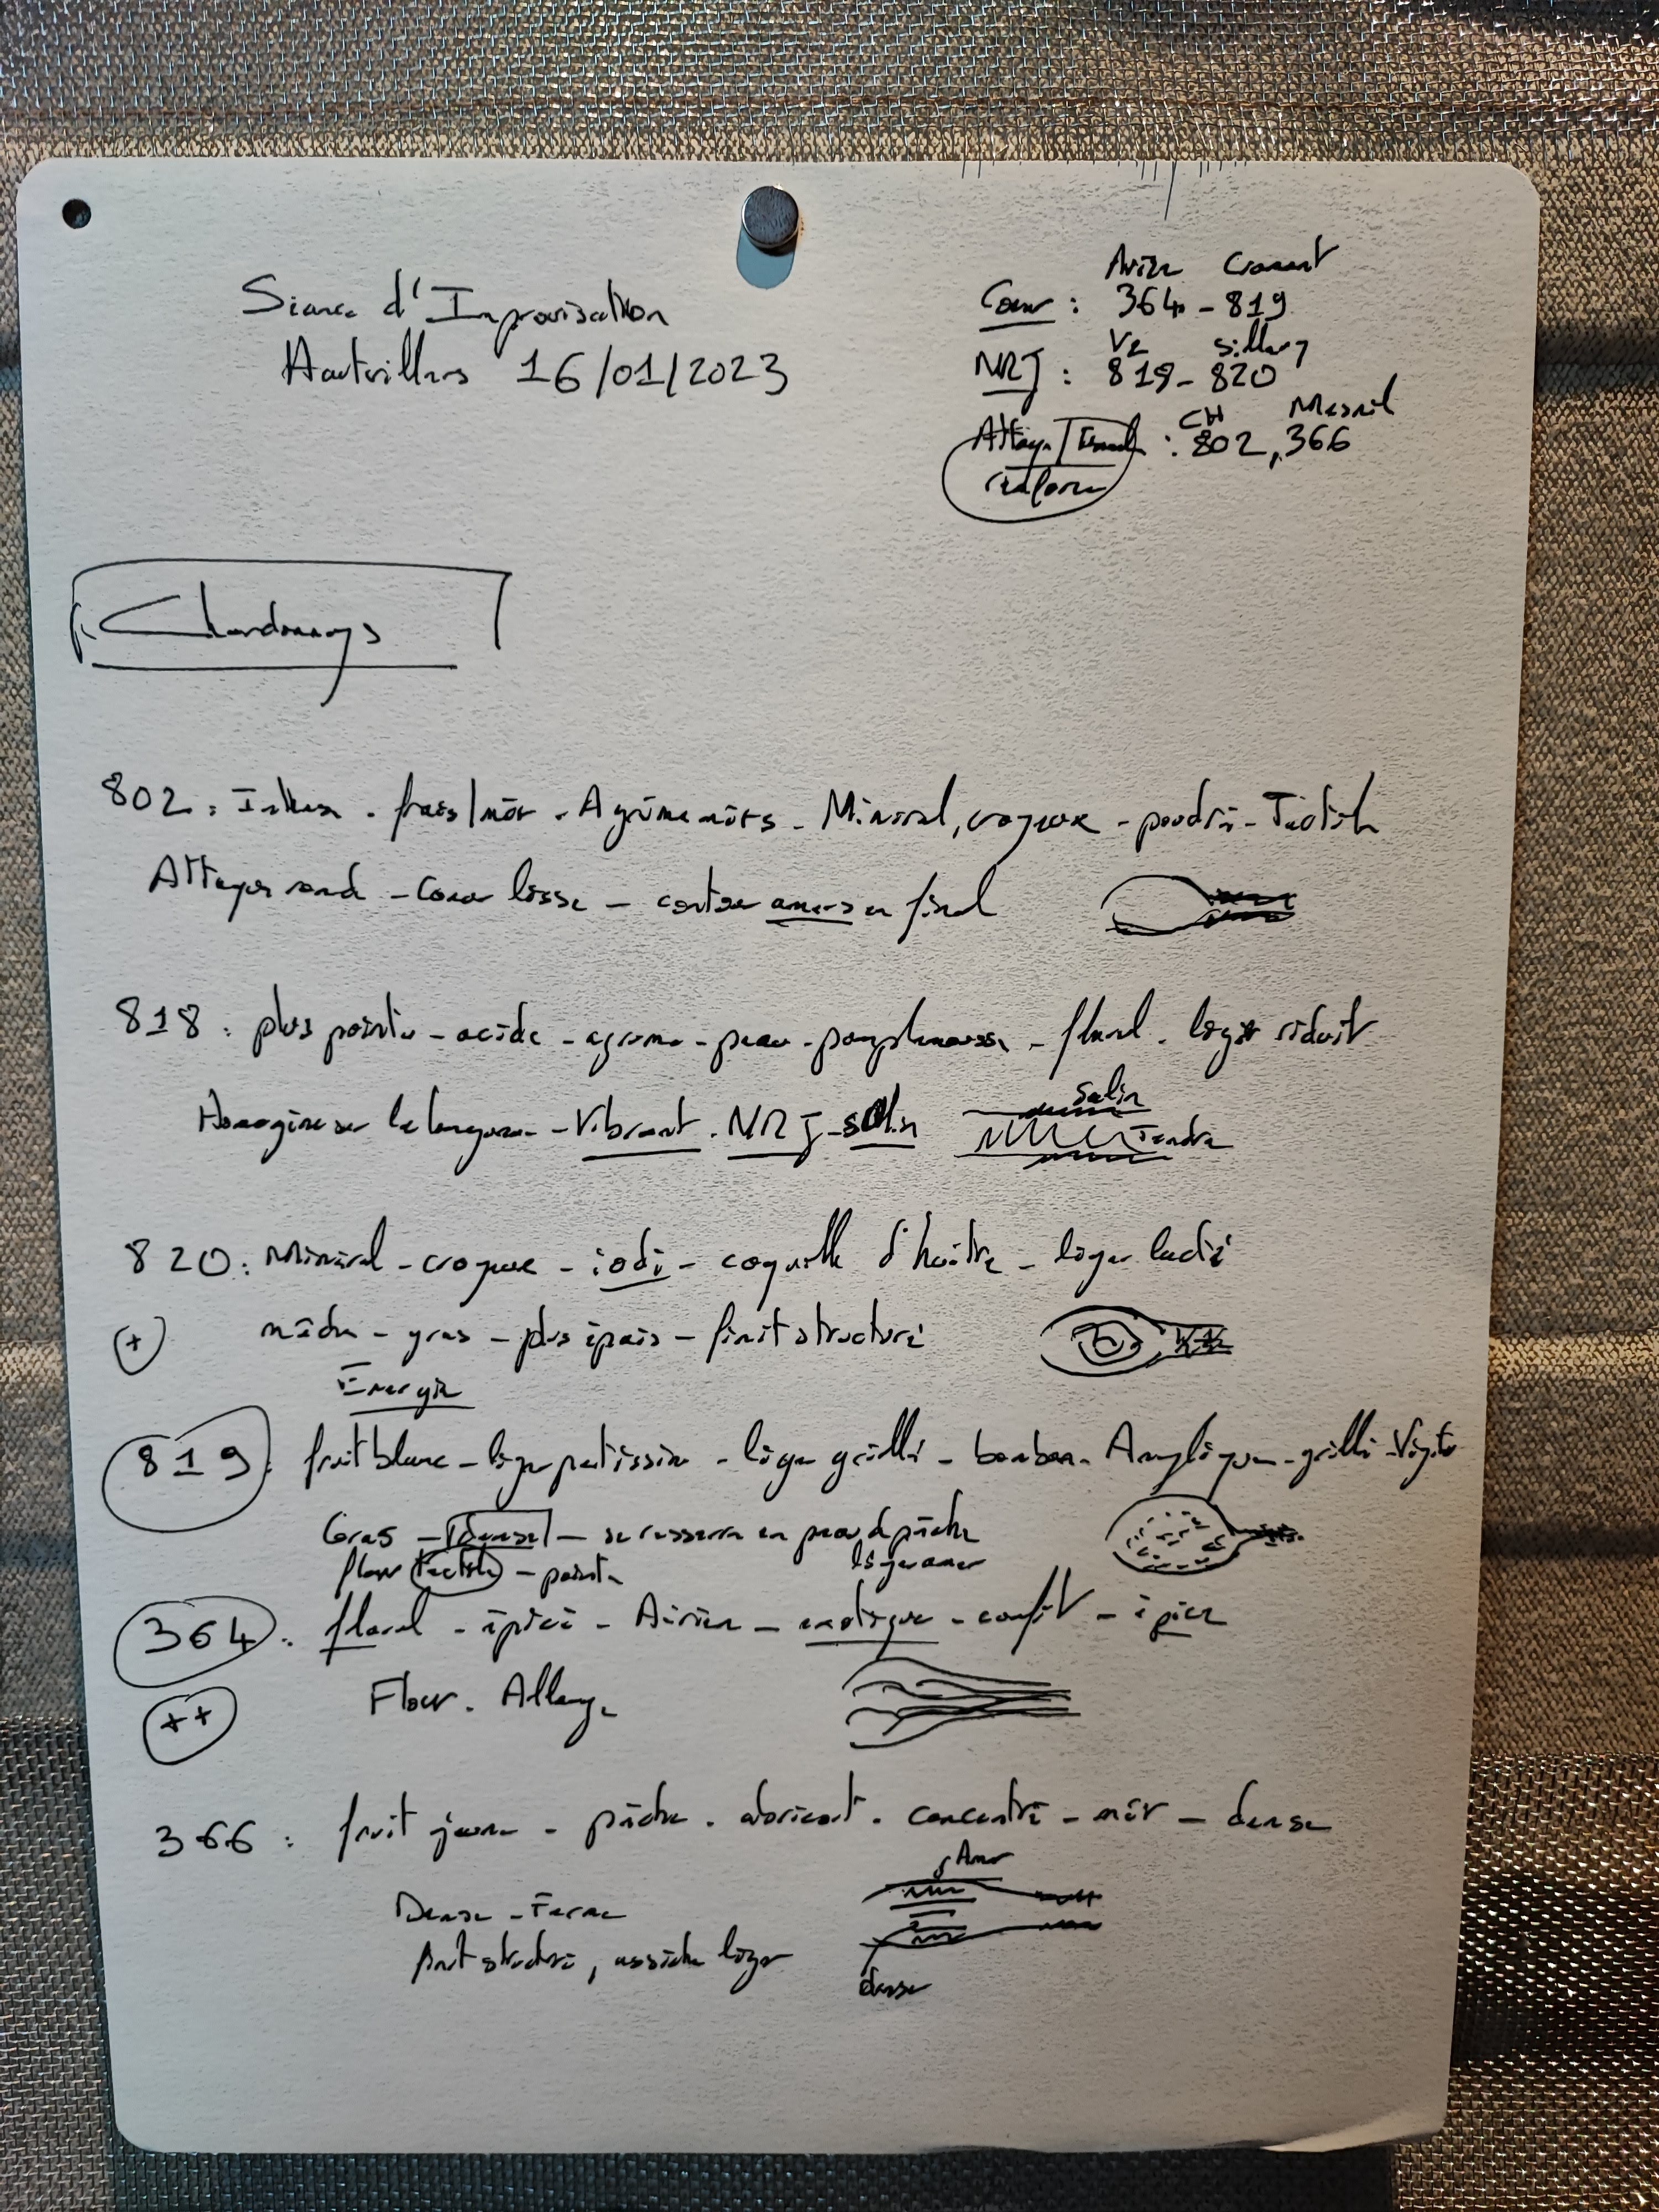 Séance d'Improvisation
Hautvillers 16/01/2023
Avize Cramant
Coeur : 364 - 819
Ve Sillery
NRJ : 819 - 820
CH Mesnil
Attaque / Final : 802, 366
Chardonnays
802 : Intense - frais/mûr - Agrume mûrs - Minéral, crayeux - poudré - Tactile
Attaque ronde - Coeur lisse - contour amers en final
818 : plus pointu - acide - agrume - peau - pamplemousse - floral - léger réduit
Homogène sur la longueur - Vibrant - NRJ - salin
Salin
Tendre
820 : Minéral - crayeux - iodé - coquille d'huître - léger lacté
+
mâche - gras - plus épais - finit structuré
Energie
819 : fruit blanc - léger patissier - léger grillé - bonbon - Anglique - grillé - Végéto
Gras - Dense - se resserre en peau de pêche
flow tactile - pointe
léger amer
364 : floral - épicé - Aérien - exotique - confit - épice
++
Flow. Allonge
366 : fruit jaune - pêche - abricot - concentré - mûr - dense
Amer
Dense - Ferme
finit structuré, assèche léger
dense